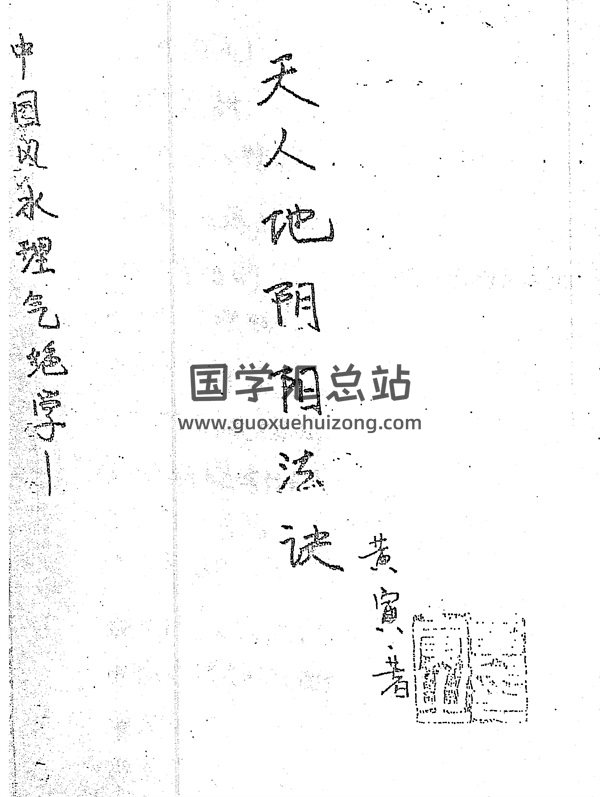 中国风水理气绝学一
天人地阴阳法诀
黄寅·著
国学汇总站
www.guoxuehuizong.com